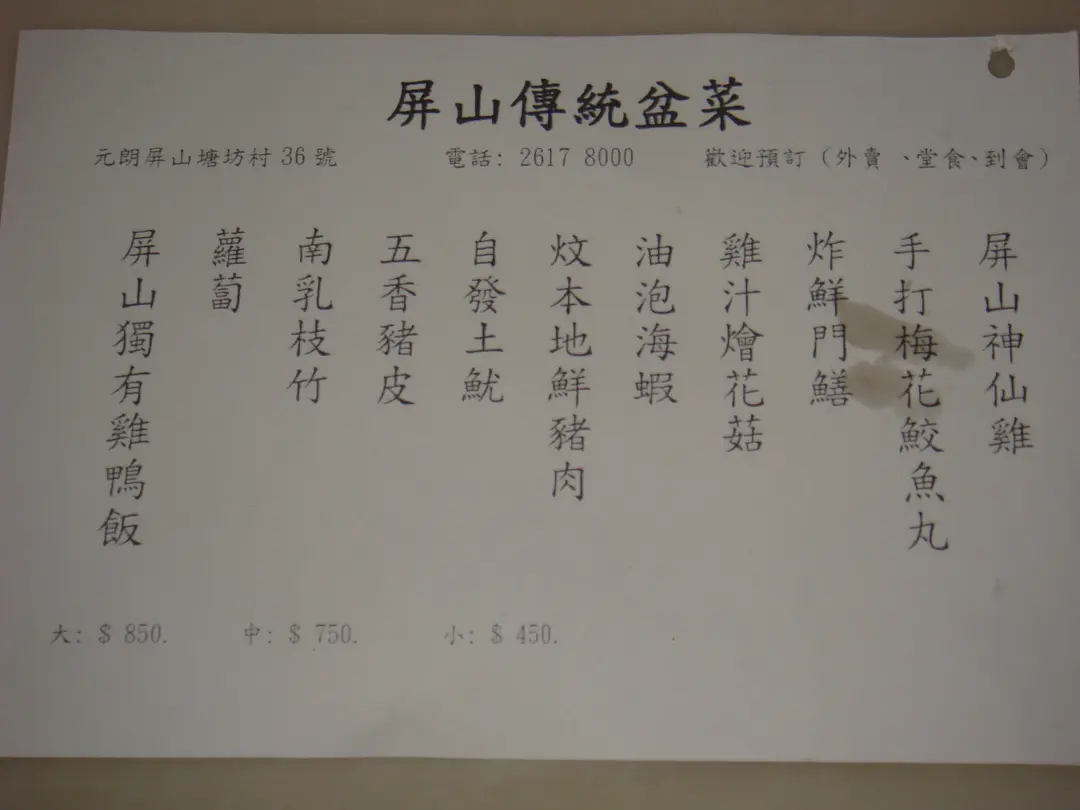 屏山傳統盆菜
元朗屏山塘坊村 36 號 電話: 2617 8000 歡迎預訂（外賣、堂食、到會）
屏山神仙雞
手打梅花鮫魚丸
炸鮮門鱔
雞汁燴花菇
油泡海蝦
炆本地鮮豬肉
自發土魷
五香豬皮
南乳枝竹
蘿蔔
屏山獨有雞鴨飯
大: $ 850. 中: $ 750. 小: $ 450.